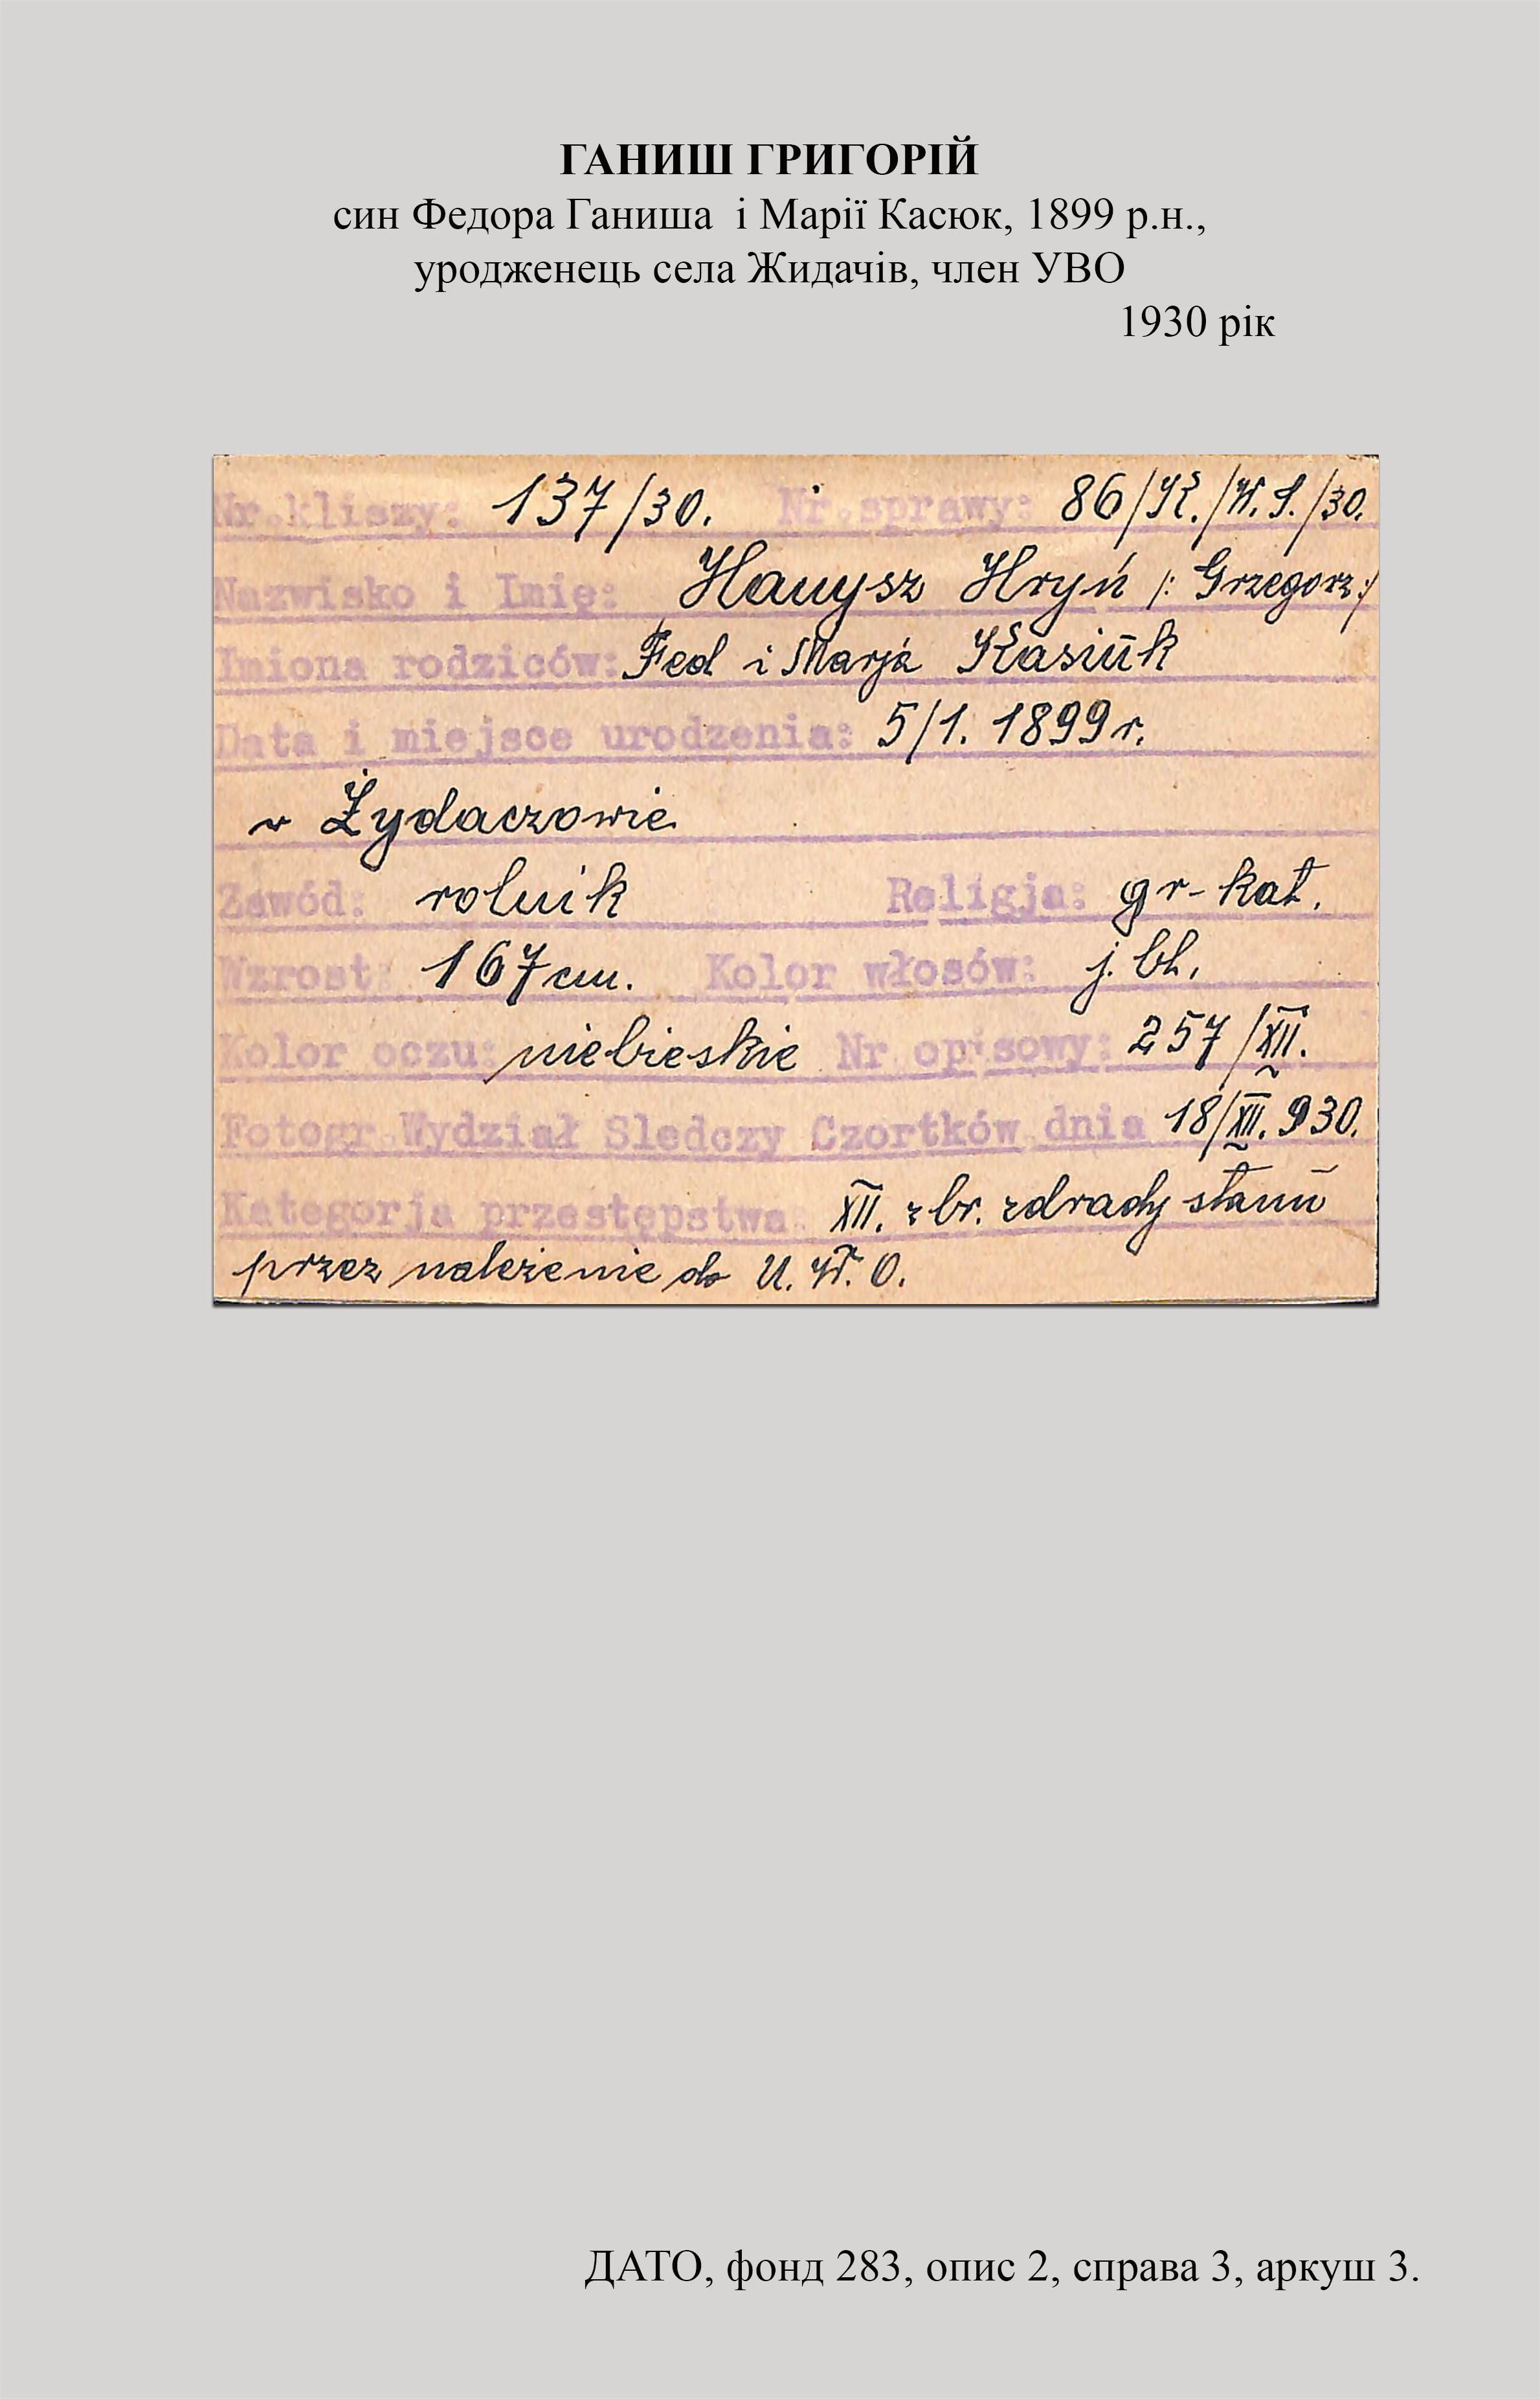 ГАНИШ ГРИГОРІЙ
син Федора Ганиша і Марії Касюк, 1899 р.н.,
уродженець села Жидачів, член УВО
1930 рік
Nr.kliszy: 137/30. Nr.sprawy: 86/K./W.S./30.
Nazwisko i Imię: Hanysz Hryń /: Grzegorz :/
Imiona rodziców: Fed i Marja Kasiuk
Data i miejsce urodzenia: 5/1. 1899 r.
w Żydaczowie
Zawód: rolnik Religja: gr-kat.
Wzrost: 167 cm. Kolor włosów: j. bl.
Kolor oczu: niebieskie Nr opisowy: 257/XII.
Fotogr.Wydział Sledczy Czortków dnia 18/XII. 930.
Kategorja przestępstwa: XII. zbr. zdrady stanu
przez należenie do U. W. O.
ДАТО, фонд 283, опис 2, справа 3, аркуш 3.